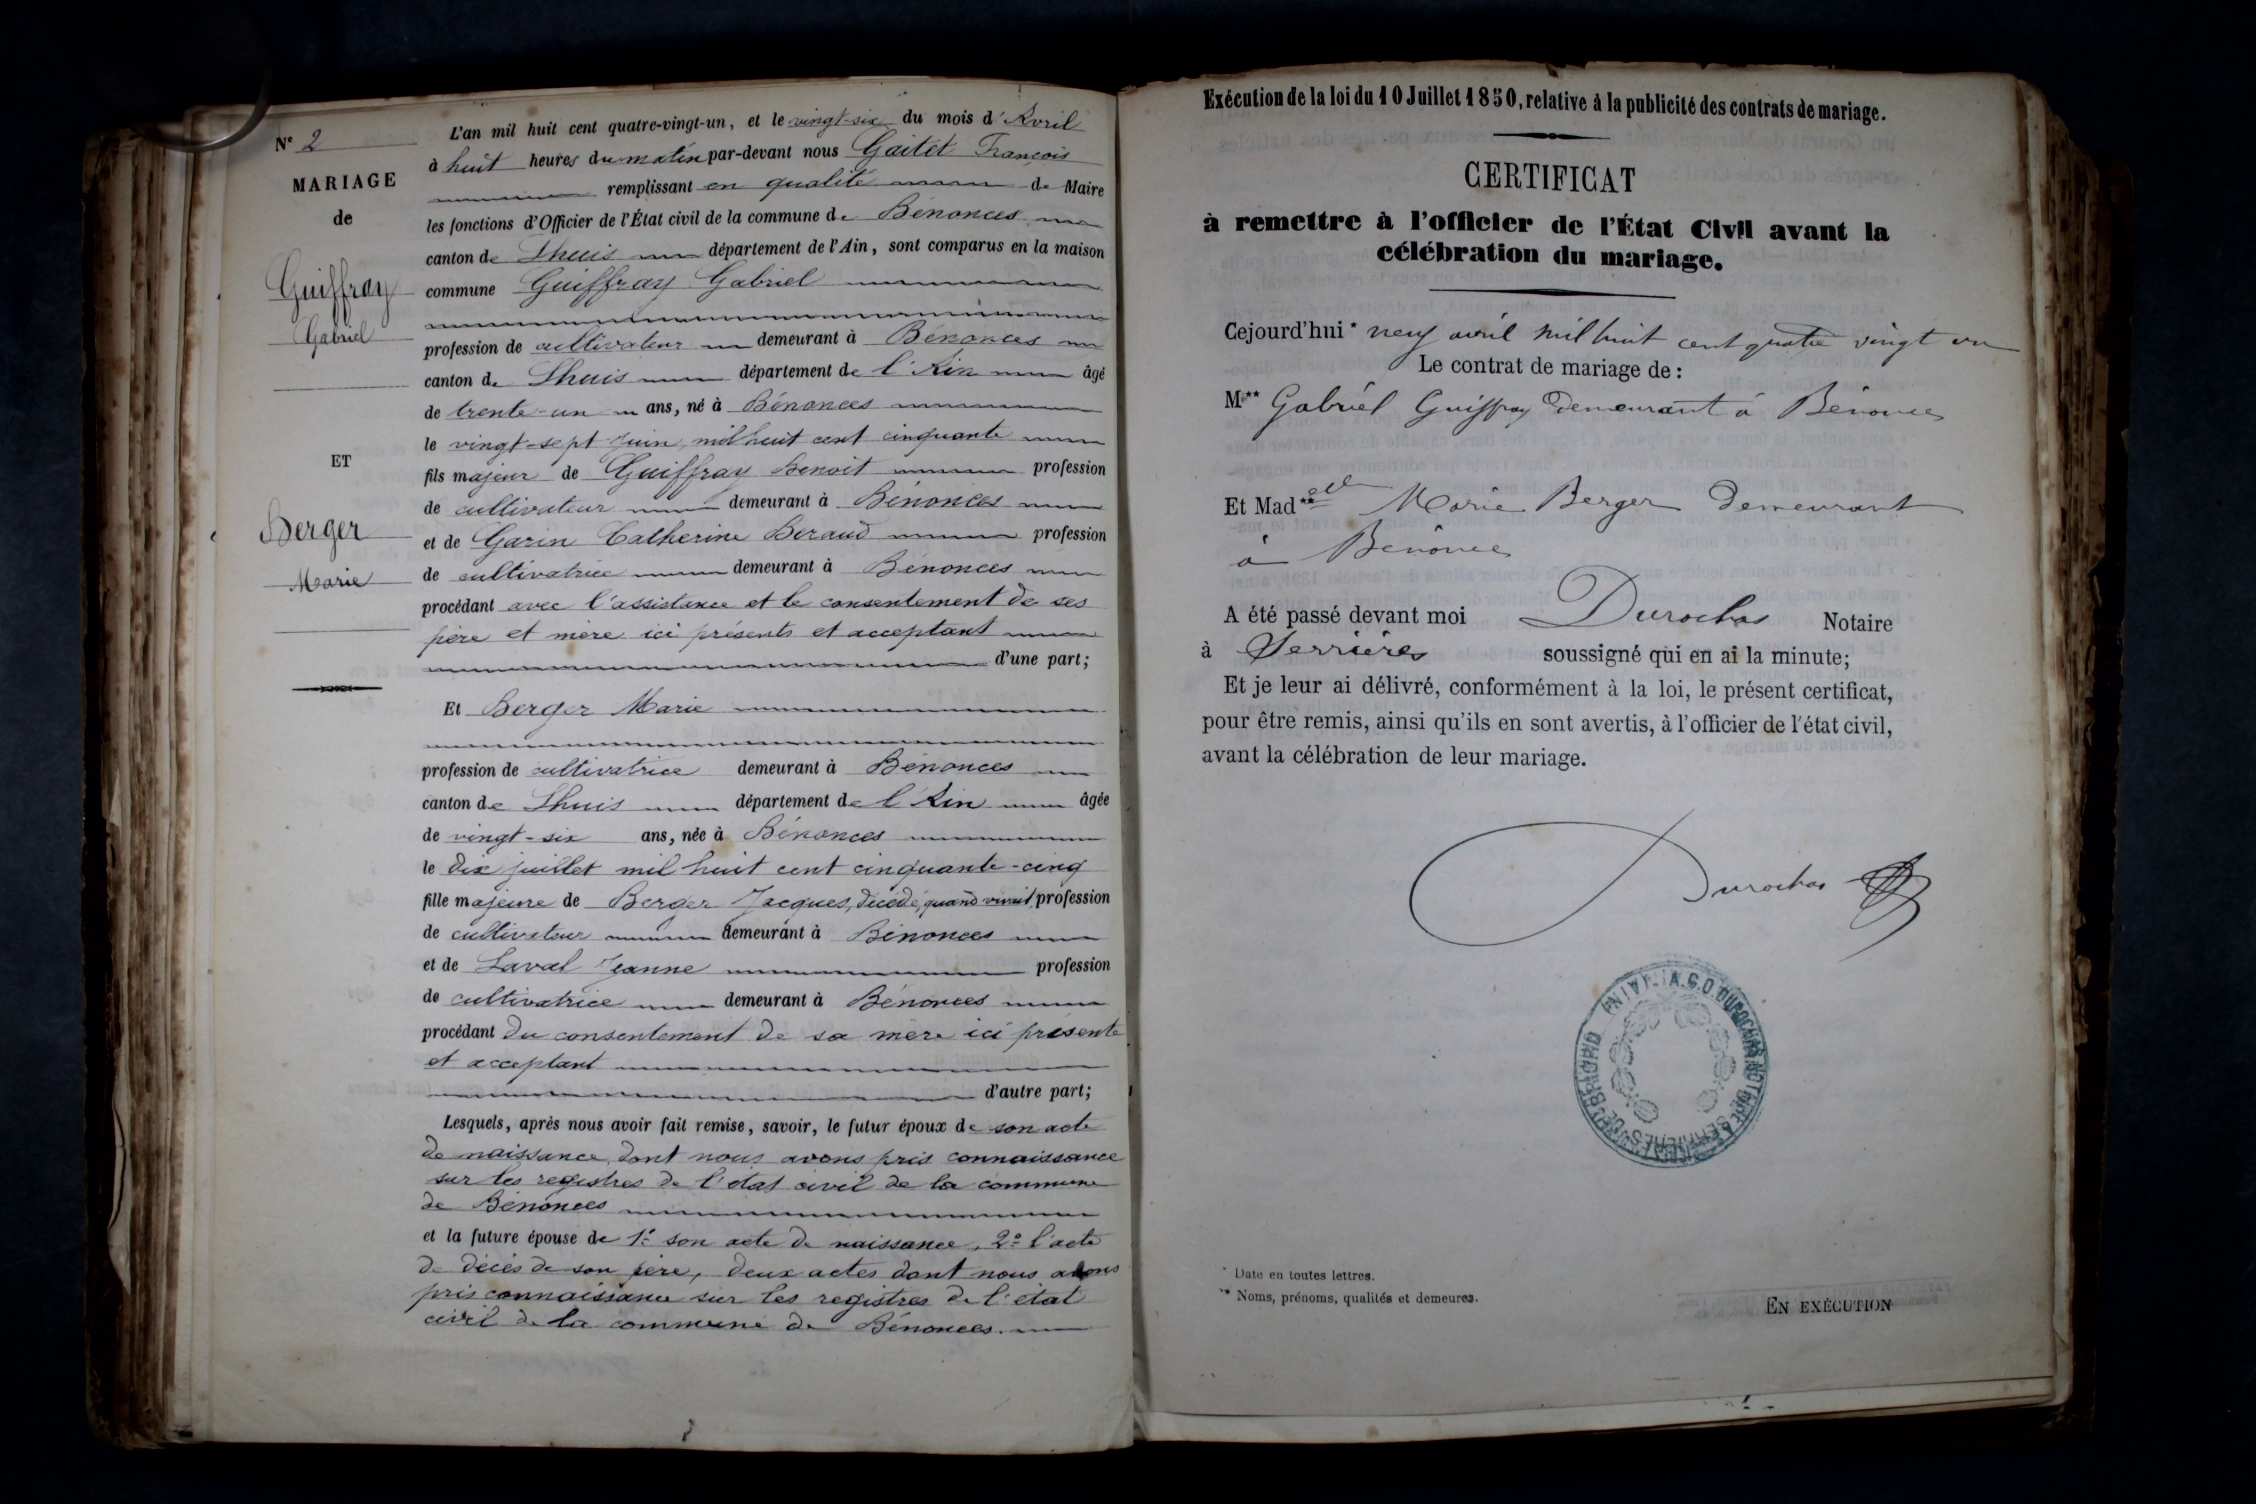 N° 2
MARIAGE
de
Guiffray
Gabriel
ET
Berger
Marie
L'an mil huit cent quatre-vingt-un, et le vingt-six du mois d'Avril
à huit heures du matin par-devant nous Gaitet François
remplissant en qualité de Maire
les fonctions d'Officier de l'État civil de la commune de Bénonces
canton de Lhuis département de l'Ain, sont comparus en la maison
commune Guiffray Gabriel
profession de cultivateur demeurant à Bénonces
canton de Lhuis département de l'Ain âgé
de trente-un ans, né à Bénonces
le vingt-sept Juin mil huit cent cinquante
fils majeur de Guiffray Benoit profession
de cultivateur demeurant à Bénonces
et de Garin Catherine Beraud profession
de cultivatrice demeurant à Bénonces
procédant avec l'assistance et le consentement de ses
père et mère ici présents et acceptant
d'une part;
Et Berger Marie
profession de cultivatrice demeurant à Bénonces
canton de Lhuis département de l'Ain âgée
de vingt-six ans, née à Bénonces
le dix juillet mil huit cent cinquante-cinq
fille majeure de Berger Jacques, décédé, quand vivait profession
de cultivateur demeurant à Bénonces
et de Laval Jeanne profession
de cultivatrice demeurant à Bénonces
procédant du consentement de sa mère ici présente
et acceptant
d'autre part;
Lesquels, après nous avoir fait remise, savoir, le futur époux de son acte
de naissance, dont nous avons pris connaissance
sur les registres de l'état civil de la commune
de Bénonces
et la future épouse de 1° son acte de naissance, 2° l'acte
de décès de son père, deux actes dont nous avons
pris connaissance sur les registres de l'état
civil de la commune de Bénonces.
Exécution de la loi du 10 Juillet 1850, relative à la publicité des contrats de mariage.
CERTIFICAT
à remettre à l'officier de l'État Civil avant la
célébration du mariage.
Cejourd'hui * neuf avril mil huit cent quatre vingt un
Le contrat de mariage de :
M** Gabriel Guiffray demeurant à Bénonces
Et Mad**elle Marie Berger demeurant
à Bénonces
A été passé devant moi Durochas Notaire
à Serrières soussigné qui en ai la minute;
Et je leur ai délivré, conformément à la loi, le présent certificat,
pour être remis, ainsi qu'ils en sont avertis, à l'officier de l'état civil,
avant la célébration de leur mariage.
Durochas
A.C.O. DUROCHAS NOTAIRE A SERRIERES DE BRIORD (AIN)
* Date en toutes lettres.
** Noms, prénoms, qualités et demeures.
EN EXÉCUTION